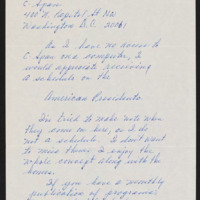 C-Span
400 N. Capitol, St NW
Washington D.C. 20001
As I have no access to
C Span on a computer, I
would appreciate receiving
a schedule on the
American Presidents
I've tried to make note when
they come on here, as I do
not a schedule. I don't want
to miss them. I enjoy the
whole concept along with the
homes.
If you have a monthly
publication of programs,